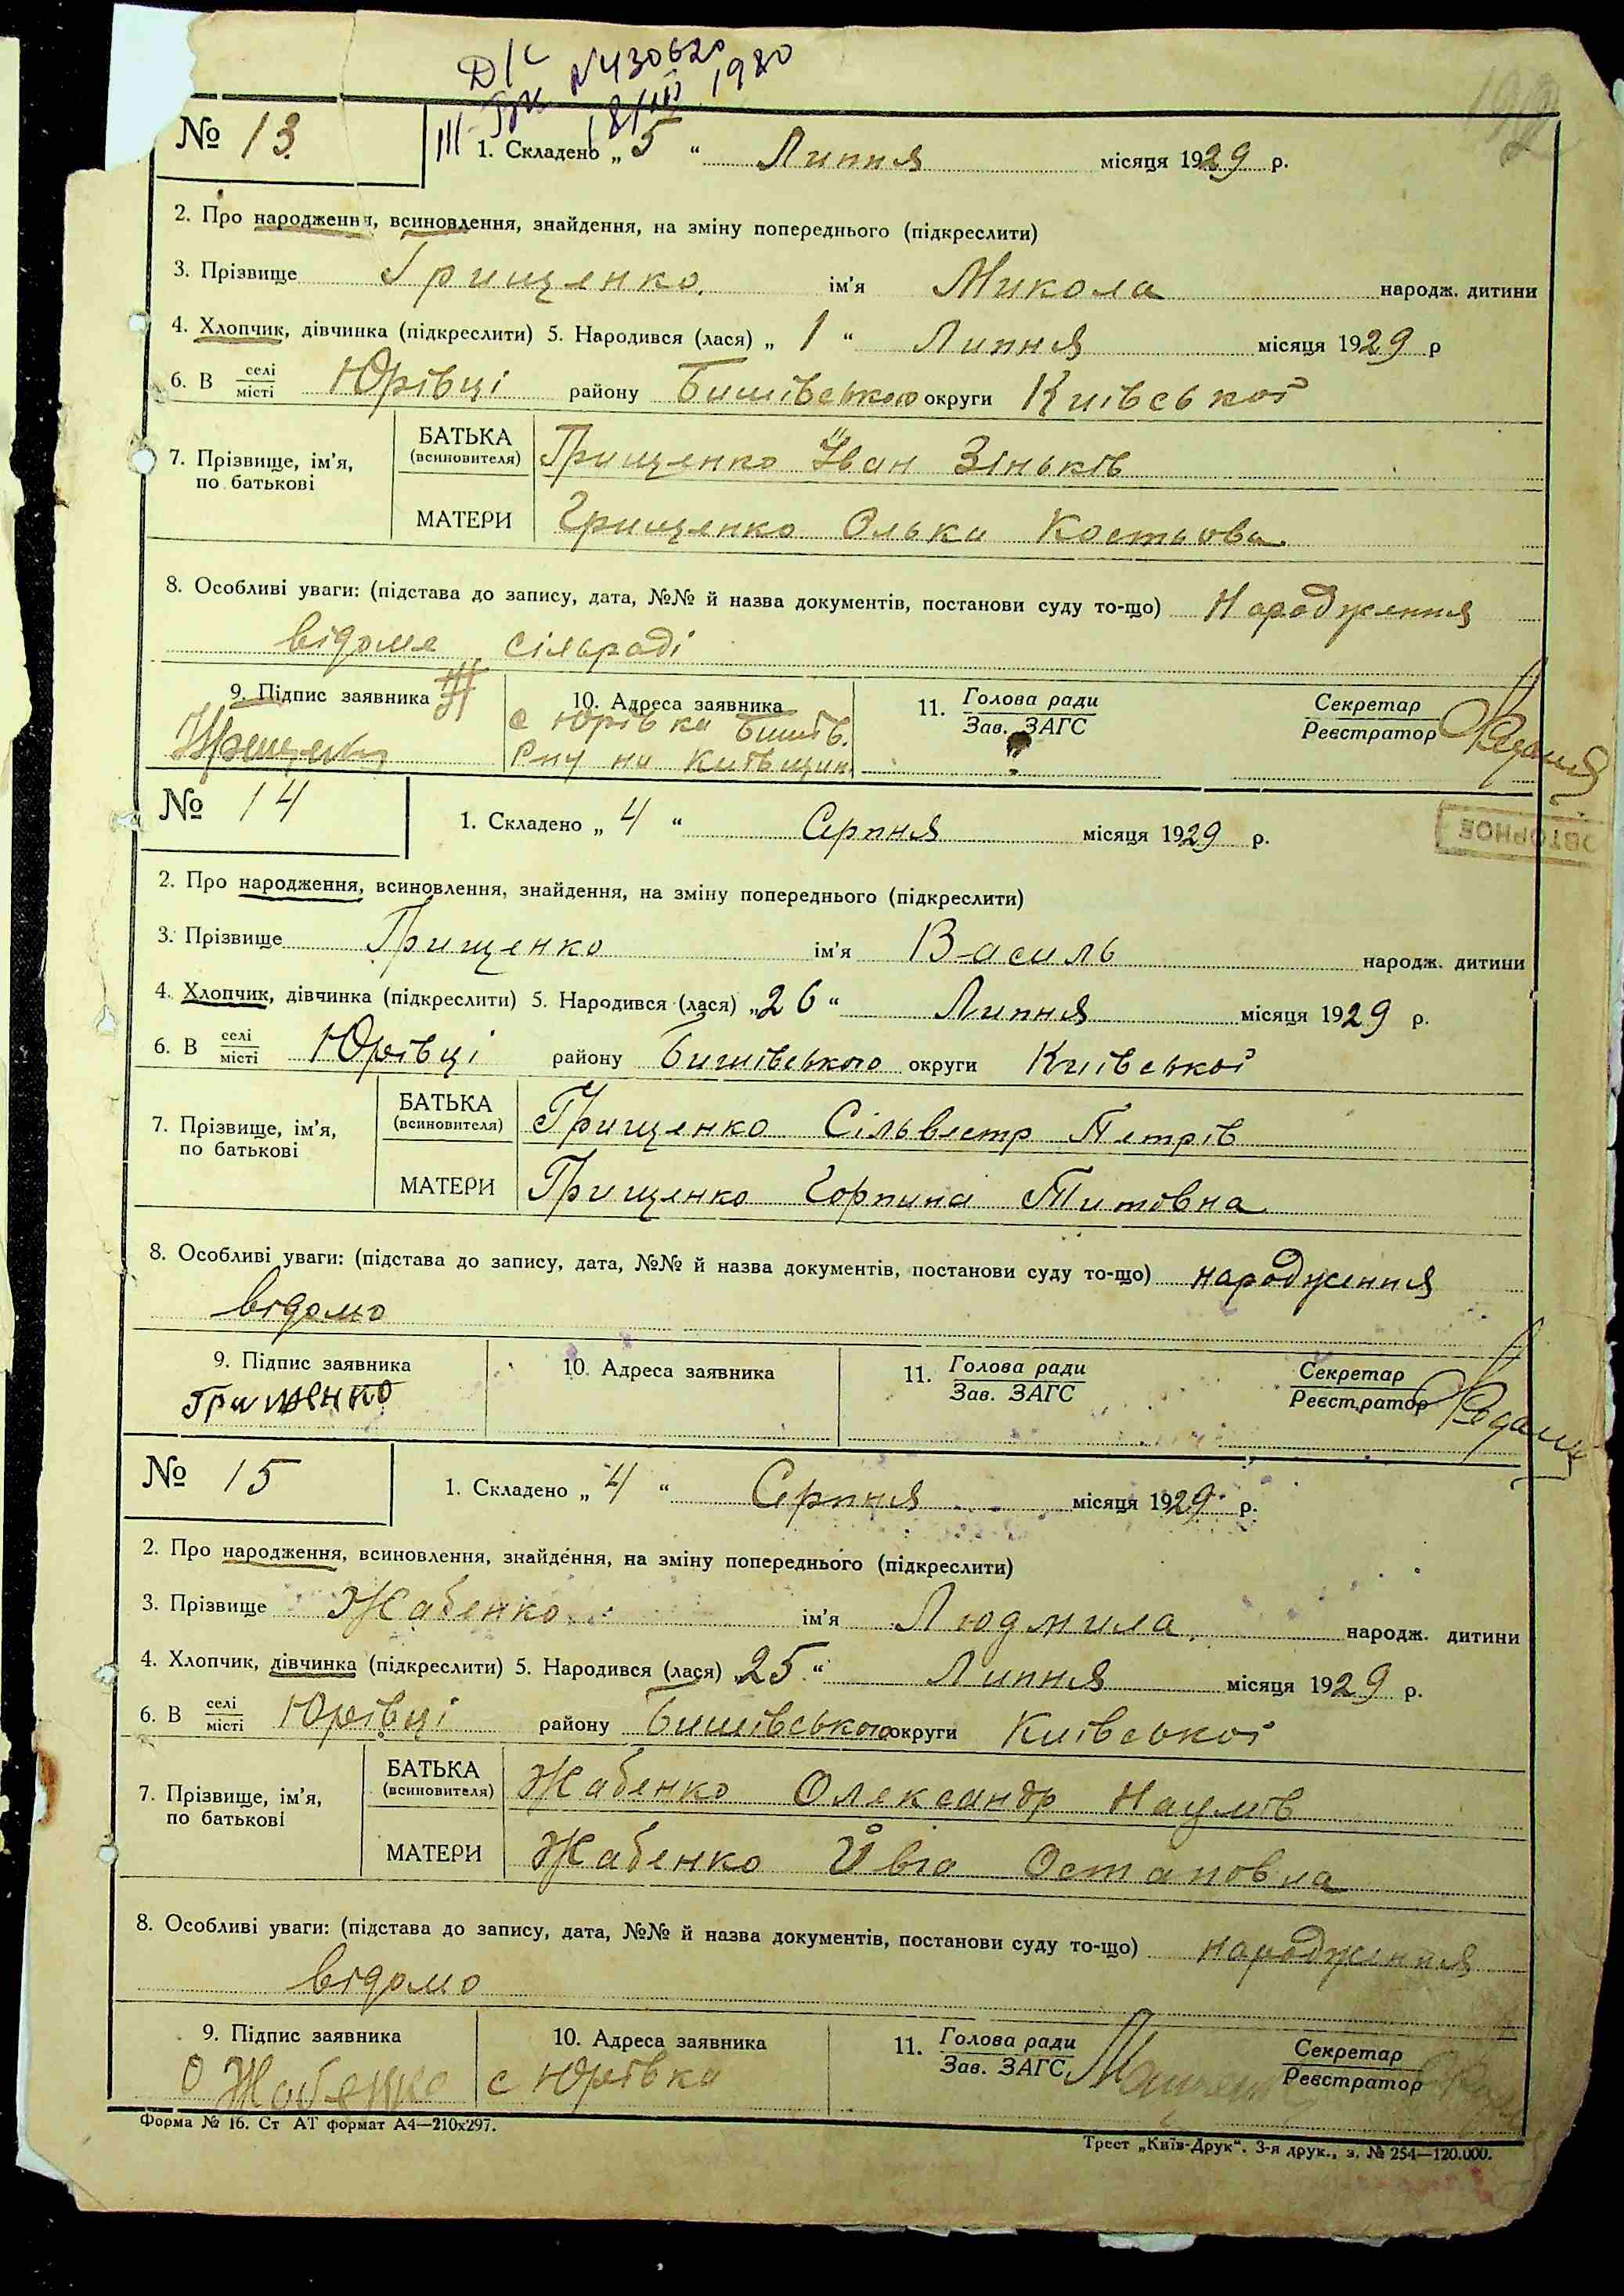 Д/С №430620
18/III 1980
192
№ 13. 1. Складено „ 5 “ Липня місяця 1929 р.
2. Про народження, всиновлення, знайдення, на зміну попереднього (підкреслити)
3. Прізвище Грищенко. ім'я Микола народж. дитини
4. Хлопчик, дівчинка (підкреслити) 5. Народився (лася) „ 1 “ Липня місяця 1929 р
6. В селі місті Юрівці району Бишівського округи Київської
7. Прізвище, ім'я, по батькові БАТЬКА (всиновителя) Грищенко Іван Зіньків
МАТЕРИ Грищенко Олька Костьова
8. Особливі уваги: (підстава до запису, дата, №№ й назва документів, постанови суду то-що) Народження
відоме сільраді
9. Підпис заявника 10. Адреса заявника 11. Голова ради Зав. ЗАГС Секретар Реєстратор
с Юрівка Бишів.
Р-ну на Київщин.
№ 14 1. Складено „ 4 “ Серпня місяця 1929 р.
2. Про народження, всиновлення, знайдення, на зміну попереднього (підкреслити)
3. Прізвище Грищенко ім'я Василь народж. дитини
4. Хлопчик, дівчинка (підкреслити) 5. Народився (лася) „26“ Липня місяця 1929 р.
6. В селі місті Юрівці району Бишівського округи Київської
7. Прізвище, ім'я, по батькові БАТЬКА (всиновителя) Грищенко Сільвестр Петрів
МАТЕРИ Грищенко Горпина Титовна
8. Особливі уваги: (підстава до запису, дата, №№ й назва документів, постанови суду то-що) народження
відомо
9. Підпис заявника 10. Адреса заявника 11. Голова ради Зав. ЗАГС Секретар Реєстратор
№ 15 1. Складено „ 4 “ Серпня місяця 1929 р.
2. Про народження, всиновлення, знайдення, на зміну попереднього (підкреслити)
3. Прізвище Жабенко ім'я Людмила народж. дитини
4. Хлопчик, дівчинка (підкреслити) 5. Народився (лася) „25“ Липня місяця 1929 р.
6. В селі місті Юрівці району Бишівського округи Київської
7. Прізвище, ім'я, по батькові БАТЬКА (всиновителя) Жабенко Олександр Наумів
МАТЕРИ Жабенко Остаповна
8. Особливі уваги: (підстава до запису, дата, №№ й назва документів, постанови суду то-що) народження
відомо
9. Підпис заявника 10. Адреса заявника 11. Голова ради Зав. ЗАГС Секретар Реєстратор
О Жабенко с Юрівка
Форма № 16. Ст АТ формат А4—210х297.
Трест „Київ-Друк“. 3-я друк., з. № 254—120.000.